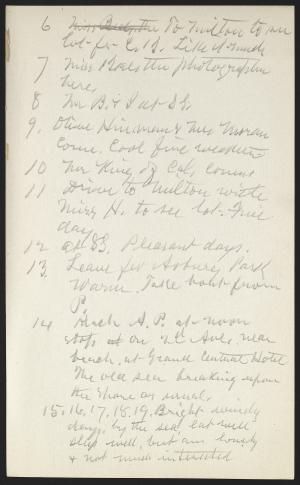 6 Miss Beebe the To Milton to see
lot for C. B. Like it much
7 Miss the photographer
here,
8 Mr B. & I at SS.
9. Olive Hinman & Mrs Moran
come. Cool fine weather
10 Mr King of Col, comes
11 Drive to Milton with
Miss H. to see lot. Fine
day.
12 at SS. Pleasant days.
13. Leave for Asbury Park
Warm. Take boat from
P.
14 Reach A. P. at noon
stop at on 2d Ave. near
beach, at Grand Central Hotel
The old sea breaking upon
the shore as usual.
15, 16, 17, 18, 19. Bright windy
days, by the sea, eat well
sleep well, but am lonely
& not much interested